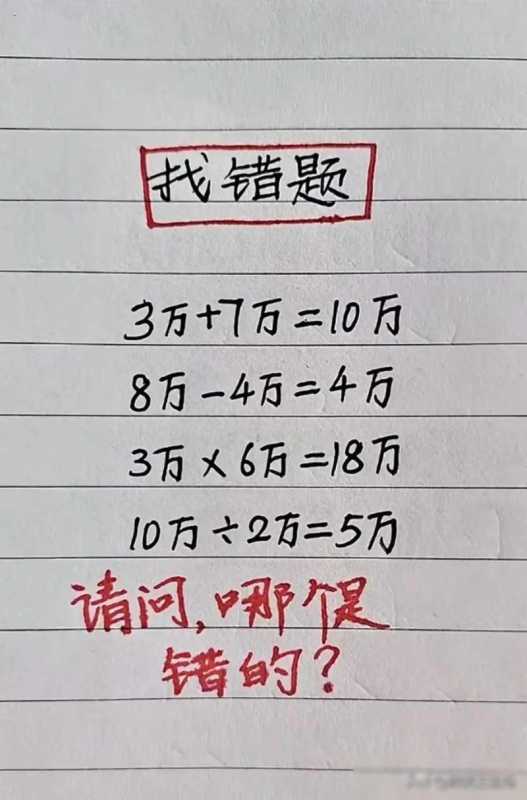 找错题
3万+7万=10万
8万-4万=4万
3万×6万=18万
10万÷2万=5万
请问,哪个是
错的?